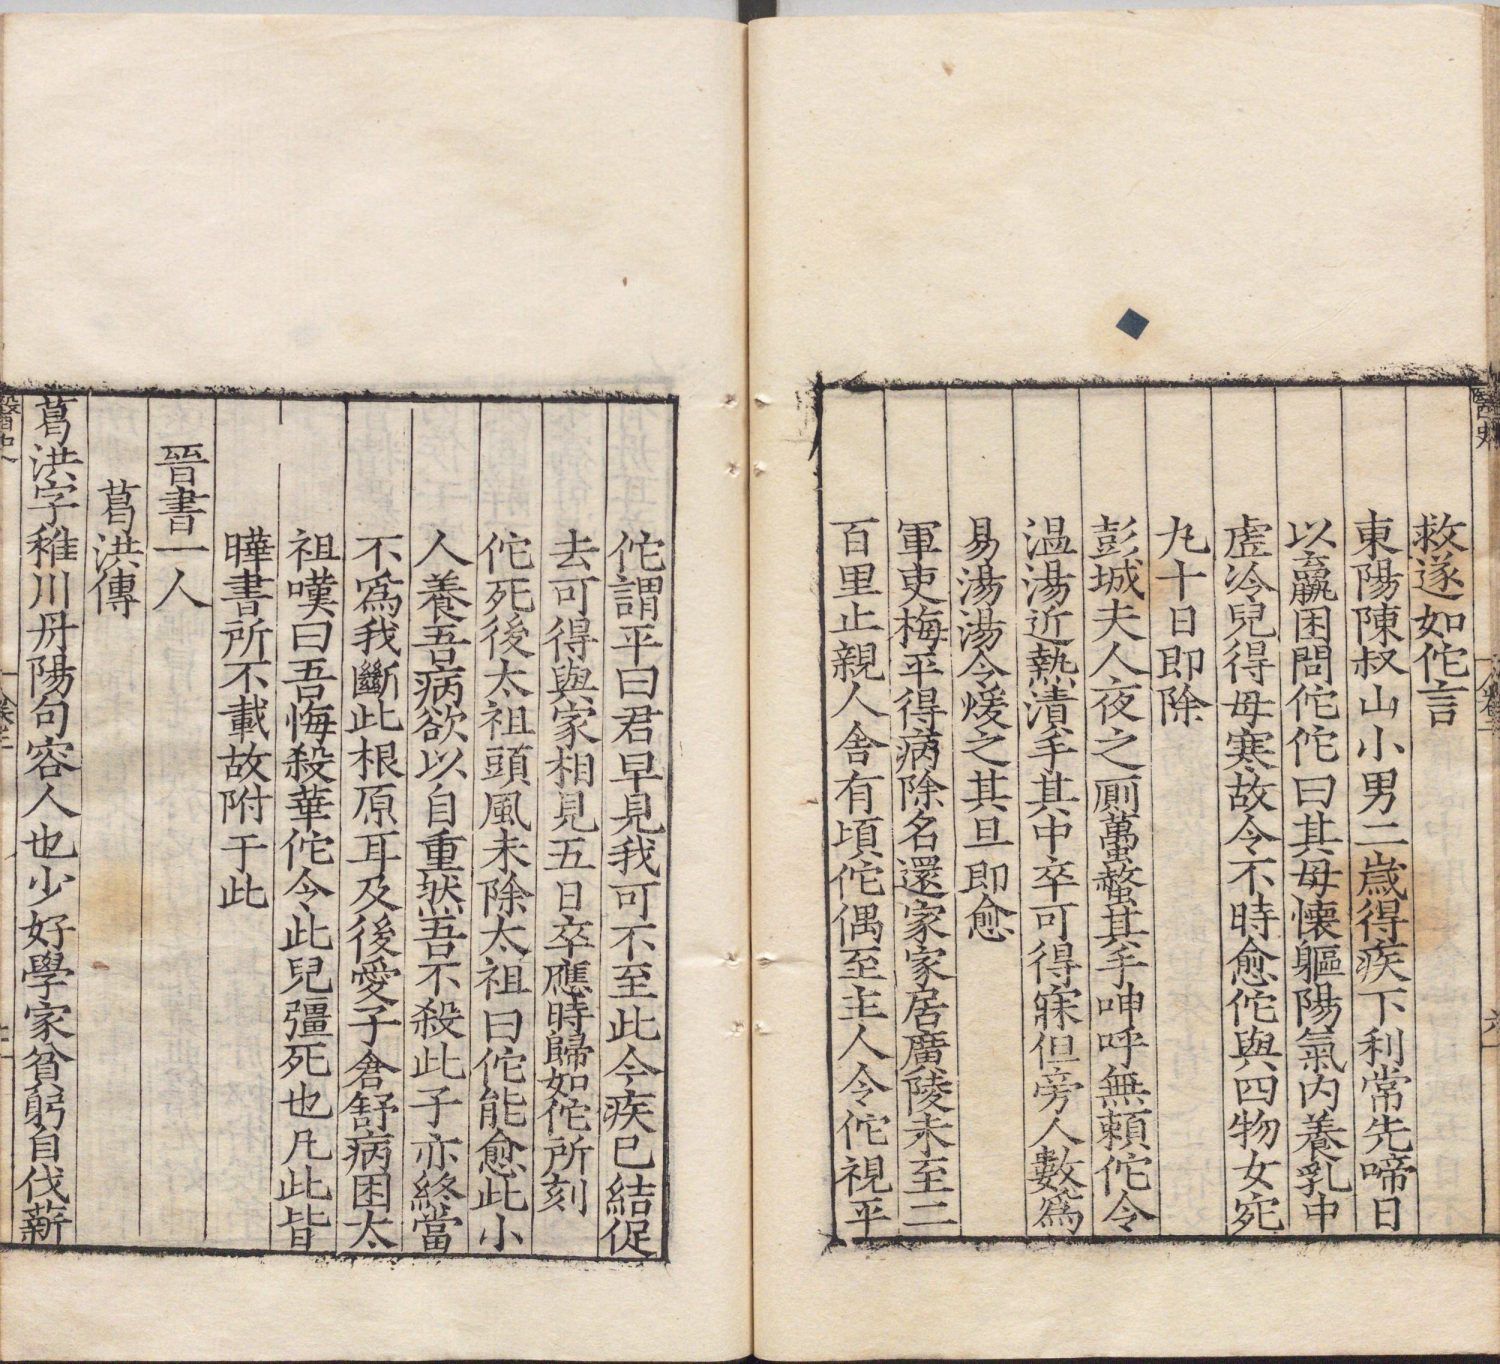 醫史
救遂如佗言
東陽陳叔山小男二歲得疾下利常先啼日
以羸困問佗佗曰其毋懷軀陽氣内養乳中
虛冷兒得毋寒故令不時愈佗與四物女宛
九十日即除
彭城夫人夜之厠蠆螫其手呻呼無賴佗令
温湯近熱漬手其中卒可得寐但旁人數爲
易湯湯令煖之其旦即愈
軍吏梅平得病除名還家家居廣陵未至二
百里止親人舍有頃佗偶至主人令佗視平
佗謂平曰君早見我可不至此今疾已結促
去可得與家相見五日卒應時歸如佗所刻
佗死後太祖頭風未除太祖曰佗能愈此小
人養吾病欲以自重然吾不殺此子亦終當
不爲我斷此根原耳及後愛子倉舒病困太
祖嘆曰吾悔殺華佗令此兒彊死也凡此皆
曄書所不載故附于此
晉書一人
葛洪傳
葛洪字稚川丹陽句容人也少好學家貧躬自伐薪
醫史